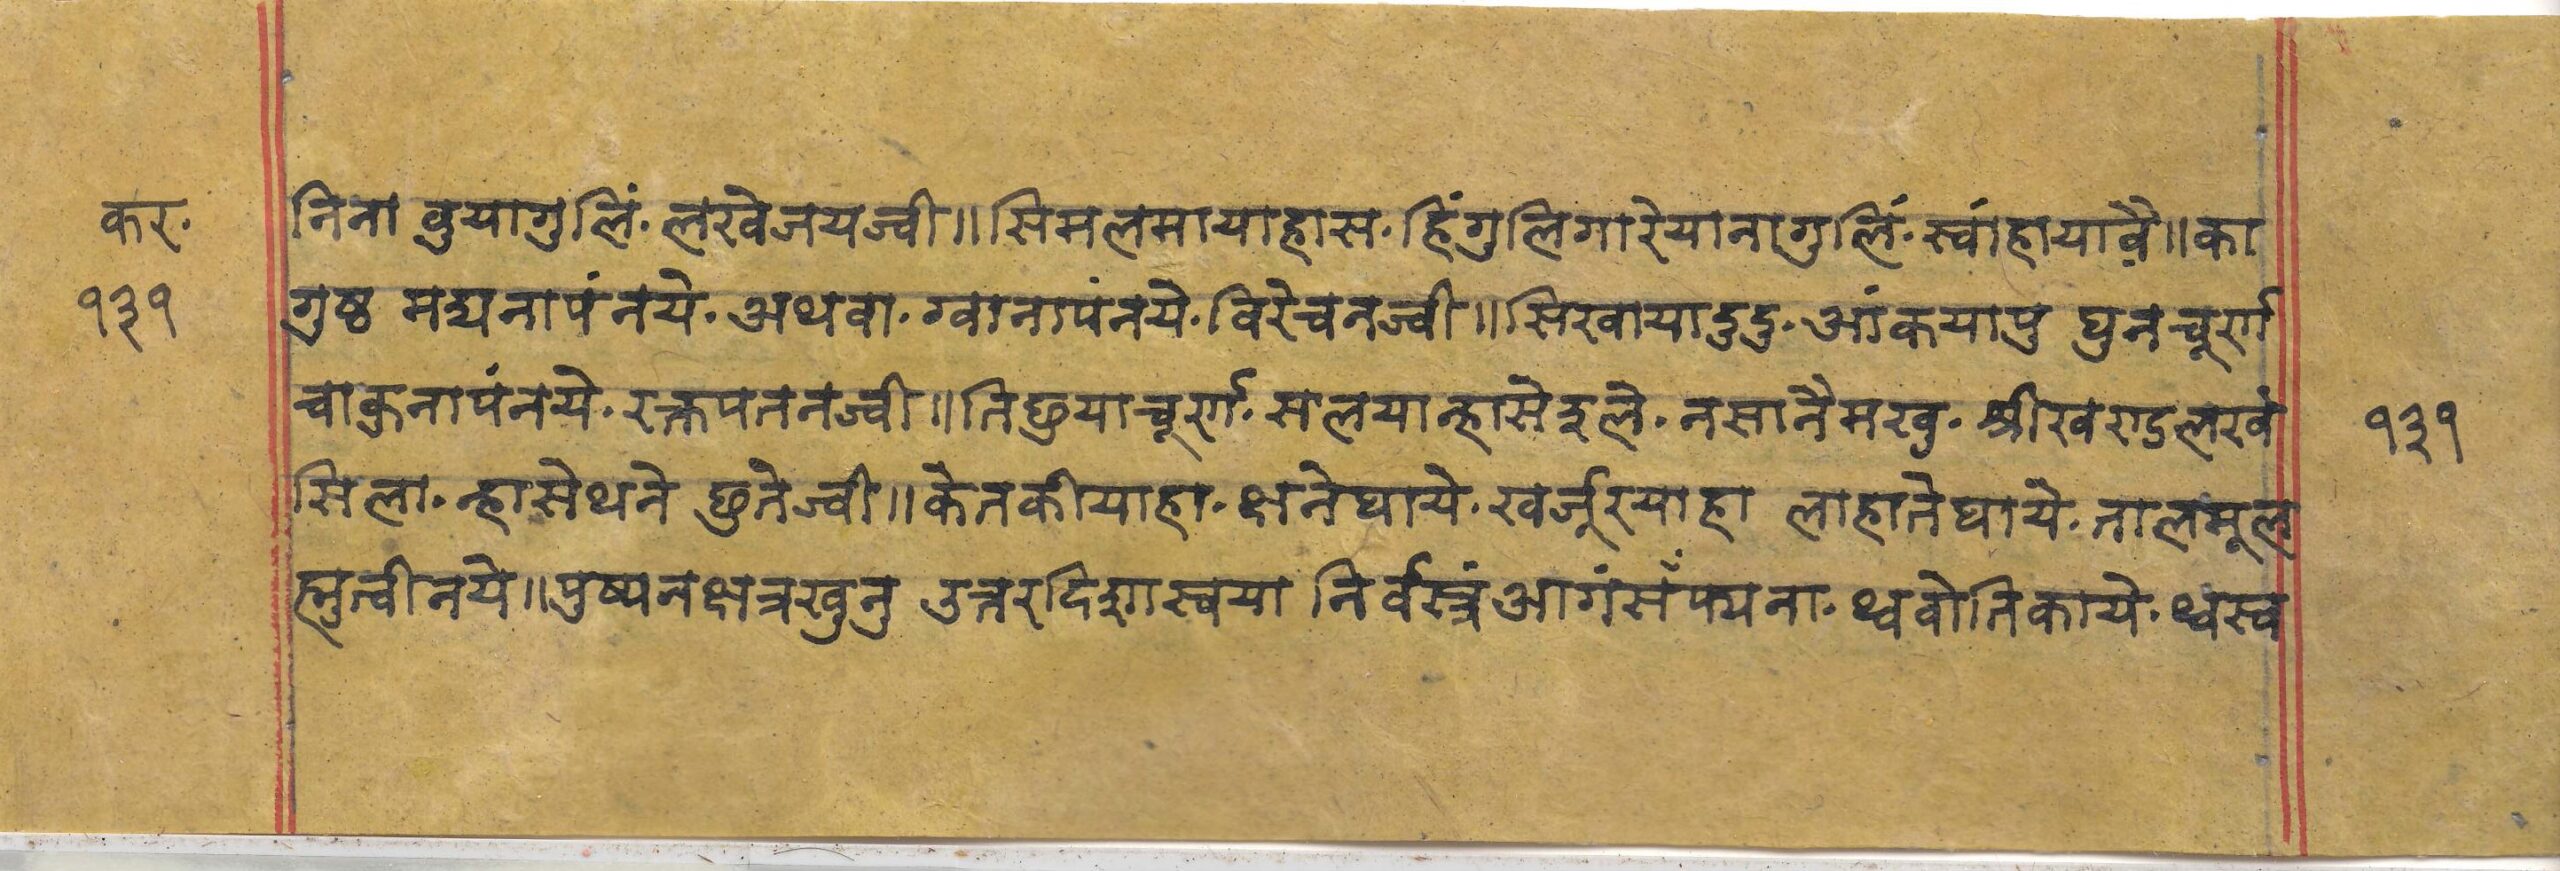 कर.
१३१
निना वुयागुलिं. लखेजयज्वी॥सिमलमायाहास. हिंगुलिगारेयानागुलिं. स्वांहायावै॥का
गुष्ठ मद्यनापंनये. अथवा. ग्वानापंनये. विरेचनज्वी॥सिखायादुदु. आंकयापु घुनचूर्ण
चाकुनापंनये. रक्तपतनज्वी॥तिछुयाचूर्ण. सलयान्हासेदुले. नसानैमखु. श्रीखण्डलखं
सिला. न्हासेथने छुतेज्वी॥केतकीयाहा. क्षनेघाये. खर्जूरयाहा लाहातेघाये. तालमूल
ह्मुत्वीनये॥पुष्यनक्षत्रखुनु उत्तरदिशास्वया निर्वस्त्रंआगंसँप्यना. थ्ववोतिकाये. थ्वस्व
१३१